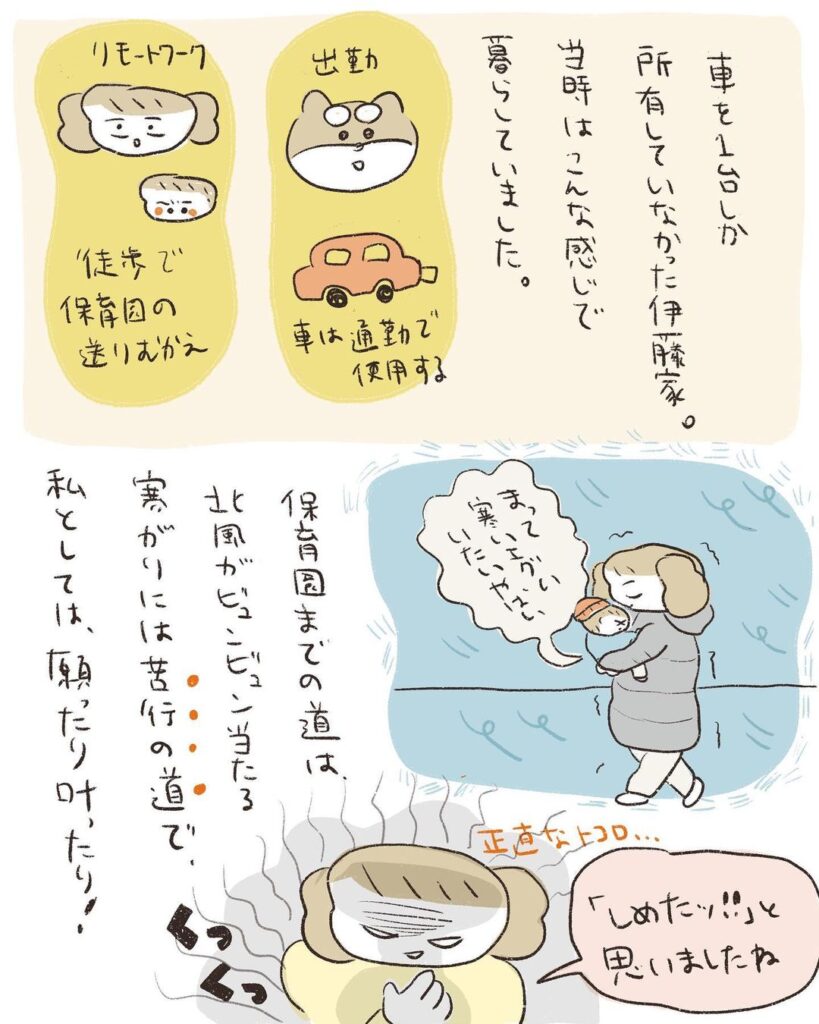 車を1台しか
所有していなかった伊藤家。
当時はこんな感じで
暮らしていました。
出勤
車は通勤で
使用する
リモートワーク
徒歩で
保育園の
送りむかえ
まって
寒いエグい
いたいやばい
保育園までの道は、
北風がビュンビュン当たる
寒がりには苦行の道で、
私としては、願ったり叶ったり!
正直なトコロ…
「しめたッ!!」と
思いましたね
くっ
くっ